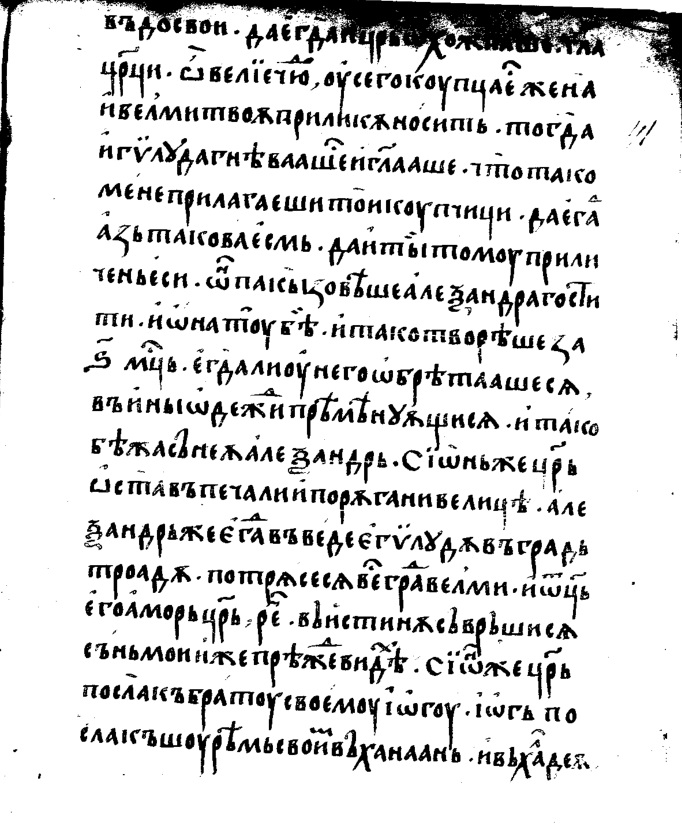 въ дос вои · да егда и цр͠ь хождаше · гла
цр҃ци · ѽ велїе чт҃ю, оу сего коупца е҄ жена
и велми твоѧ прилик ѫ носить · тогда
и гѵлꙋда гнѣвааше и гл҃ааше · что тако
мене прилагаеши тои коупчици · да егда
азь такова есмь · да и ты томоу прили
чень еси · ѿ пакы ꙁовѣше алеѯандра гости
ти · и ѡна тоу бѣ · и тако творѣше ꙁа
ѕ҃ мц҃ь · егда ли оу него ѡбрѣтааше сѧ,
въ ины ѡдежди прѣмѣнꙋѫщи сѧ · и тако
бѣжа съ неѫ алеѯандрь · сїѡнь же цр҃ь
ѡста въ печали и порѫгани велицѣ · але
ѯандрь же егда въведе егѵлꙋдѫ въ градь
троадѫ · потрѧсе сѧ ве҄ град велми · и ѡц҃ь
его аморь цр҃ь, ре҄ · въ истинѫ съврьши сѧ
сънь мои иже прѣжде видѣх · сїѡн же цр҃ь
посла къ братоу своемоу іѡгоу · іѡгь по
сла къ шоурѣмь своим въ ханаань · и въ халдеѧ